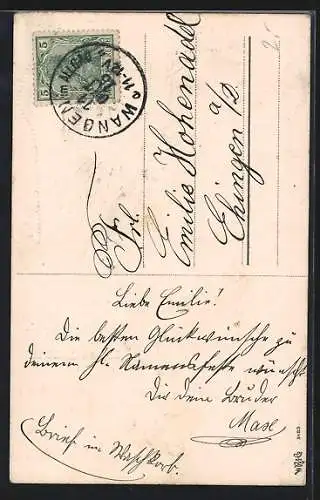 5 5
WANGEN
Frl.
Emilie Hohenadel
Ehingen a/D.
Liebe Emilie!
Die besten Glückwünsche zu
deinem hl. Namensfeste wünscht
Dir dein Bruder
Max
Brief im Waschkorb.